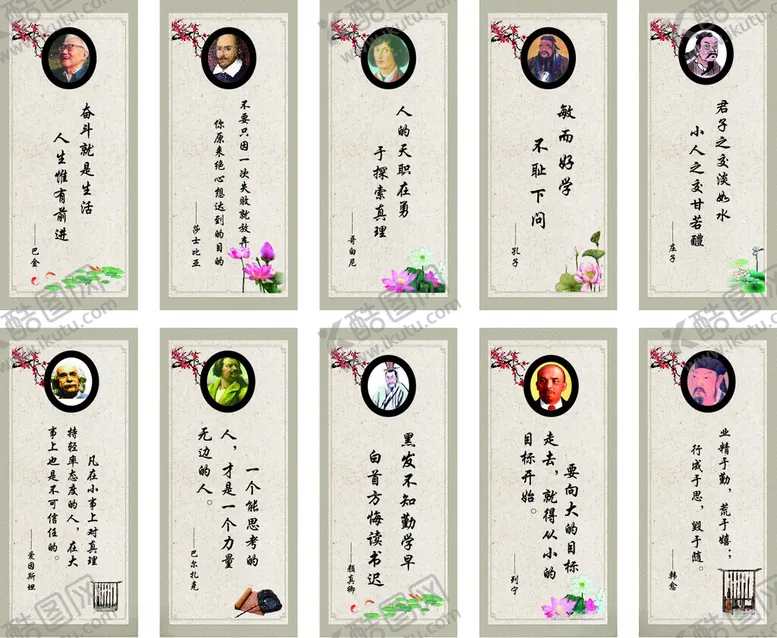 奋斗就是生活
人生惟有前进
——巴金
不要只因一次失败就放弃
你原来绝心想达到的目的
——莎士比亚
人的天职在勇
于探索真理
——哥白尼
敏而好学
不耻下问
——孔子
君子之交淡如水
小人之交甘若醴
——庄子
凡在小事上对真理
持轻率态度的人，在大
事上也是不可信任的。
——爱因斯坦
一个能思考的
人，才是一个力量
无边的人。
——巴尔扎克
黑发不知勤学早
白首方悔读书迟
——颜真卿
要向大的目标
走去，就得从小的
目标开始。
——列宁
业精于勤，荒于嬉；
行成于思，毁于随。
——韩愈
酷图网
www.ikutu.com